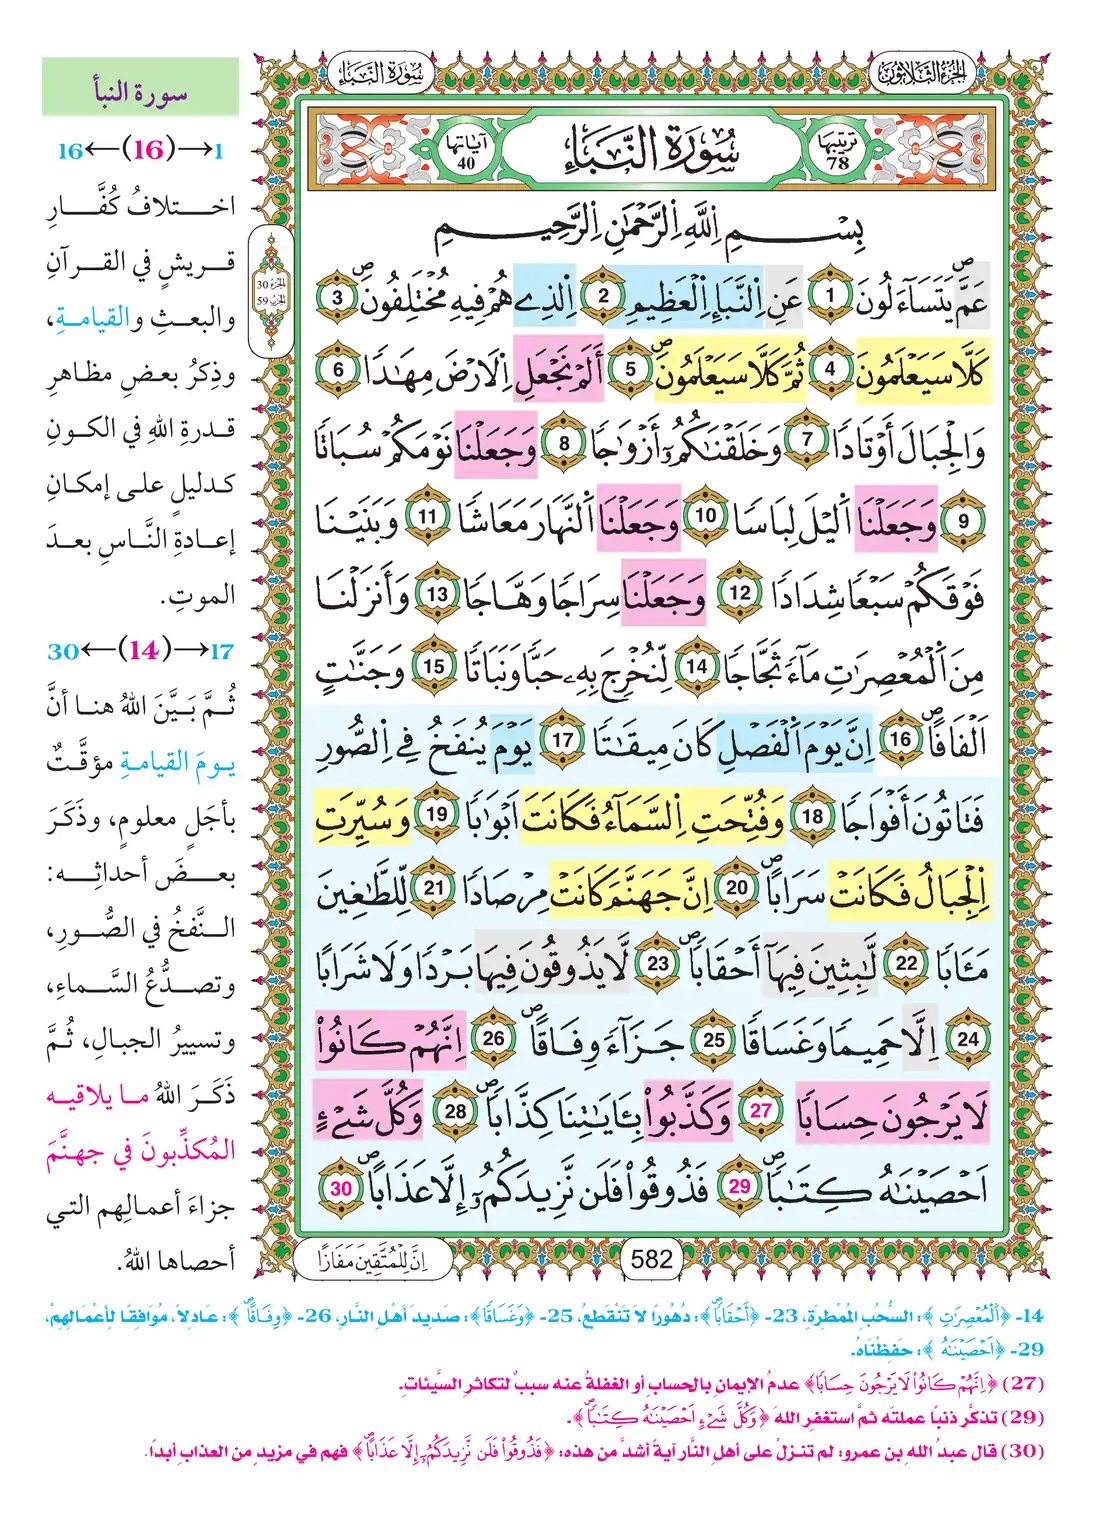 الجزء الثلاثون
سورة النبإ
ترتيبها 78
سُورَةُ النَّبَإِ
آياتها 40
بِسْمِ اِللَّهِ اِلرَّحْمَٰنِ اِلرَّحِيمِ
عَمَّ يَتَسَآءَلُونَۖ 1 عَنِ اِلنَّبَإِ اِلْعَظِيمِ 2 اِلذِے هُمْ فِيهِ مُخْتَلِفُونَۖ 3
كَلَّا سَيَعْلَمُونَ 4 ثُمَّ كَلَّا سَيَعْلَمُونَۖ 5 أَلَمْ نَجْعَلِ اِلَارْضَ مِهَٰدًا 6
وَالْجِبَالَ أَوْتَادًا 7 وَخَلَقْنَٰكُمُۥٓ أَزْوَٰجًا 8 وَجَعَلْنَا نَوْمَكُمْ سُبَاتًا
9 وَجَعَلْنَا اَليْلَ لِبَاسًا 10 وَجَعَلْنَا اَلنَّهَارَ مَعَاشًا 11 وَبَنَيْنَا
فَوْقَكُمْ سَبْعًا شِدَادًا 12 وَجَعَلْنَا سِرَاجًا وَهَّاجًا 13 وَأَنزَلْنَا
مِنَ اَلْمُعْصِرَٰتِ مَآءً ثَجَّاجًا 14 لِّنُخْرِجَ بِهِۦ حَبًّا وَنَبَاتًا 15 وَجَنَّٰتٍ
اَلْفَافًاۖ 16 اِنَّ يَوْمَ اَلْفَصْلِ كَانَ مِيقَٰتًا 17 يَوْمَ يُنفَخُ فِے اِلصُّورِ
فَتَاتُونَ أَفْوَاجًا 18 وَفُتِّحَتِ اِلسَّمَآءُ فَكَانَتَ اَبْوَٰبًا 19 وَسُيِّرَتِ
اِلْجِبَالُ فَكَانَتْ سَرَابًاۖ 20 اِنَّ جَهَنَّمَ كَانَتْ مِرْصَادًا 21 لِّلطَّٰغِينَ
مَـَٔابًا 22 لَّٰبِثِينَ فِيهَآ أَحْقَابًاۖ 23 لَّا يَذُوقُونَ فِيهَا بَرْدًا وَلَا شَرَابًا
24 اِلَّا حَمِيمًا وَغَسَاقًا 25 جَزَآءً وِفَاقًاۖ 26 اِنَّهُمْ كَانُواْ
لَا يَرْجُونَ حِسَابًا 27 وَكَذَّبُواْ بِـَٔايَٰتِنَا كِذَّابًاۖ 28 وَكُلَّ شَےْءٍ
اَحْصَيْنَٰهُ كِتَٰبًاۖ 29 فَذُوقُواْ فَلَن نَّزِيدَكُمُۥٓ إِلَّا عَذَابًاۖ 30
582
اِنَّ لِلْمُتَّقِينَ مَفَازًا
الجزء 30
الحزب 59
سورة النبأ
1→(16)←16
اختلافُ كُفَّارِ
قريشٍ في القرآنِ
والبعثِ والقيامةِ،
وذِكرُ بعضِ مظاهرِ
قدرةِ اللهِ في الكونِ
كدليلٍ على إمكانِ
إعادةِ النَّاسِ بعدَ
الموتِ.
17→(14)←30
ثُمَّ بَيَّنَ اللهُ هنا أنَّ
يومَ القيامةِ مؤقَّتٌ
بأجَلٍ معلومٍ، وذَكَرَ
بعضَ أحداثِه:
النَّفخُ في الصُّورِ،
وتصدُّعُ السَّماءِ،
وتسييرُ الجبالِ، ثُمَّ
ذَكَرَ اللهُ ما يلاقيه
المُكذِّبونَ في جهنَّمَ
جزاءَ أعمالِهم التي
أحصاها اللهُ.
14- ﴿اَلْمُعْصِرَٰتِ﴾: السُّحُبِ المُمْطِرَةِ، 23- ﴿أَحْقَابًاۖ﴾: دُهُورًا لا تَنْقَطِعُ، 25- ﴿وَغَسَاقًا﴾: صَدِيدَ أهْلِ النَّارِ، 26- ﴿وِفَاقًاۖ﴾: عَادِلاً، مُوَافِقًا لِأعْمَالِهِمْ،
29- ﴿اَحْصَيْنَٰهُ﴾: حَفِظْنَاهُ.
(27) ﴿اِنَّهُمْ كَانُواْ لَا يَرْجُونَ حِسَابًا﴾ عدمُ الإيمانِ بالحسابِ أو الغفلةُ عنه سببٌ لتكاثرِ السَّيئاتِ.
(29) تذكَّر ذنبًا عملتَه ثمَّ استغفر اللهَ ﴿وَكُلَّ شَےْءٍ اَحْصَيْنَٰهُ كِتَٰبًاۖ﴾.
(30) قال عبدُ اللهِ بن عمرو: لم تنزلْ على أهلِ النَّار آيةٌ أشدَّ من هذه: ﴿فَذُوقُواْ فَلَن نَّزِيدَكُمُۥٓ إِلَّا عَذَابًاۖ﴾ فهم في مزيدٍ من العذابِ أبدًا.